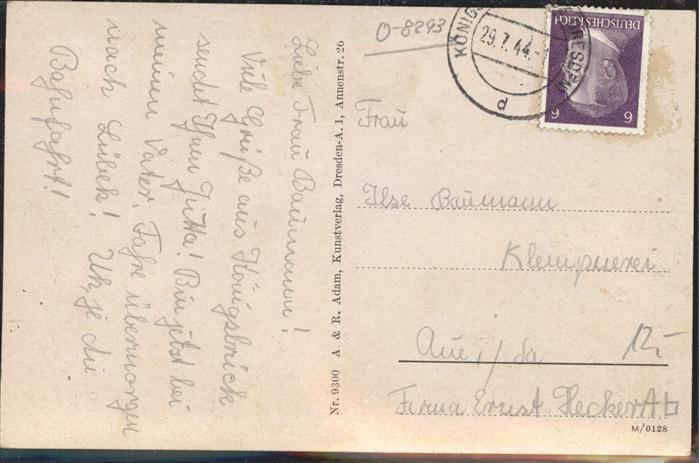 Liebe Frau Baumann!
Viele Grüße aus Königsbrück
sendet Ihnen Jutta! Bin jetzt bei
meinem Vater. Fahre übermorgen
nach Lübeck! Uh, je die
Bahnfahrt!
Nr. 9300 A & R. Adam, Kunstverlag, Dresden-A. 1, Annenstr. 26
O-8293
KÖNIGS
DRESDEN
29.7.44.-
d
DEUTSCHES REICH
6 6
Frau
Ilse Baumann
Klempnerei
Aue i/Sa
12,-
Firma Ernst Hecker Ab
M/0128